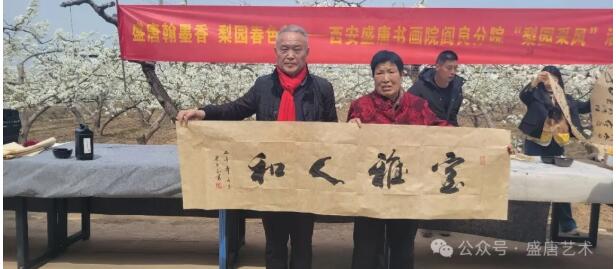 盛唐翰墨香 梨园春色 — 西安盛唐书画院阎良分院 “梨园采风”
室雅人和
公众号 · 盛唐艺术